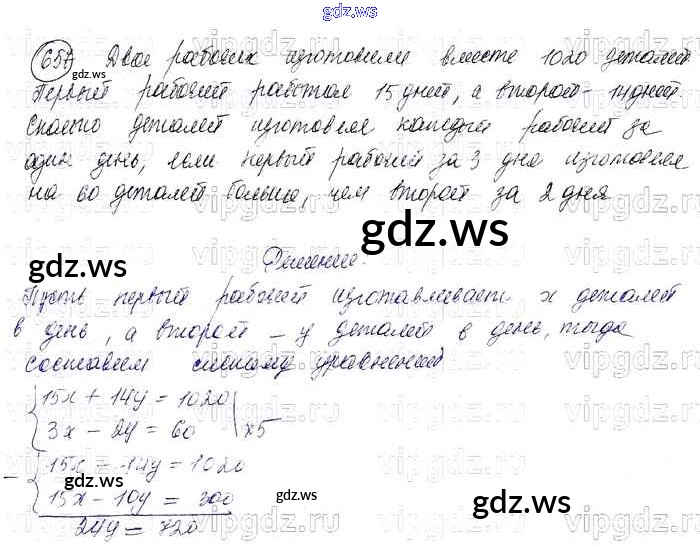 gdz.ws
657) Двое рабочих изготовили вместе 1020 деталей
Первый рабочий работал 15 дней, а второй - 14 дней.
Сколько деталей изготовил каждый рабочий за
один день, если первый рабочий за 3 дня изготовил
на 60 деталей больше, чем второй за 2 дня
gdz.ws gdz.ws
Решение.
Пусть первый рабочий изготавливает x деталей
в день, а второй - y деталей в день, тогда
составим систему уравнений
15x + 14y = 1020
3x - 2y = 60 | x5
15x + 14y = 1020
15x - 10y = 300
24y = 720
gdz.ws gdz.ws gdz.ws